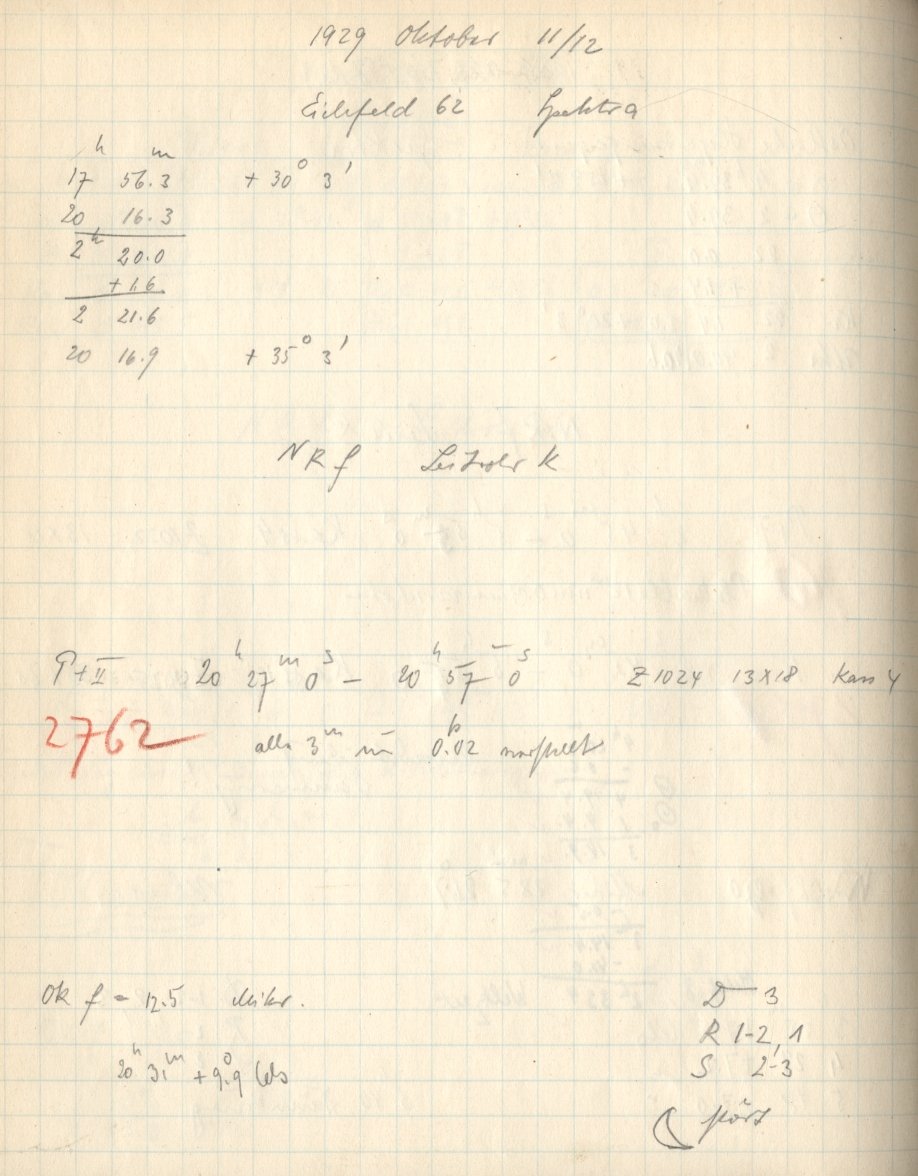 1929 Oktober 11/12
Eichfeld 62 Spektra
h m
17 56.3 + 30° 3'
20 16.3
2h 20.0
+ 1.6
2 21.6
20 16.9 + 35° 3'
NRf K
P+II 20h 27m 0s – 20h 57m 0s Z 1024 13×18 Kass 4
2762 alle 3m um 0.02 verstellt
Ok f = 12.5 Mikr.
D 3
R 1-2, 1
20h 31m + 9°.9 Cels
S 2-3
stört